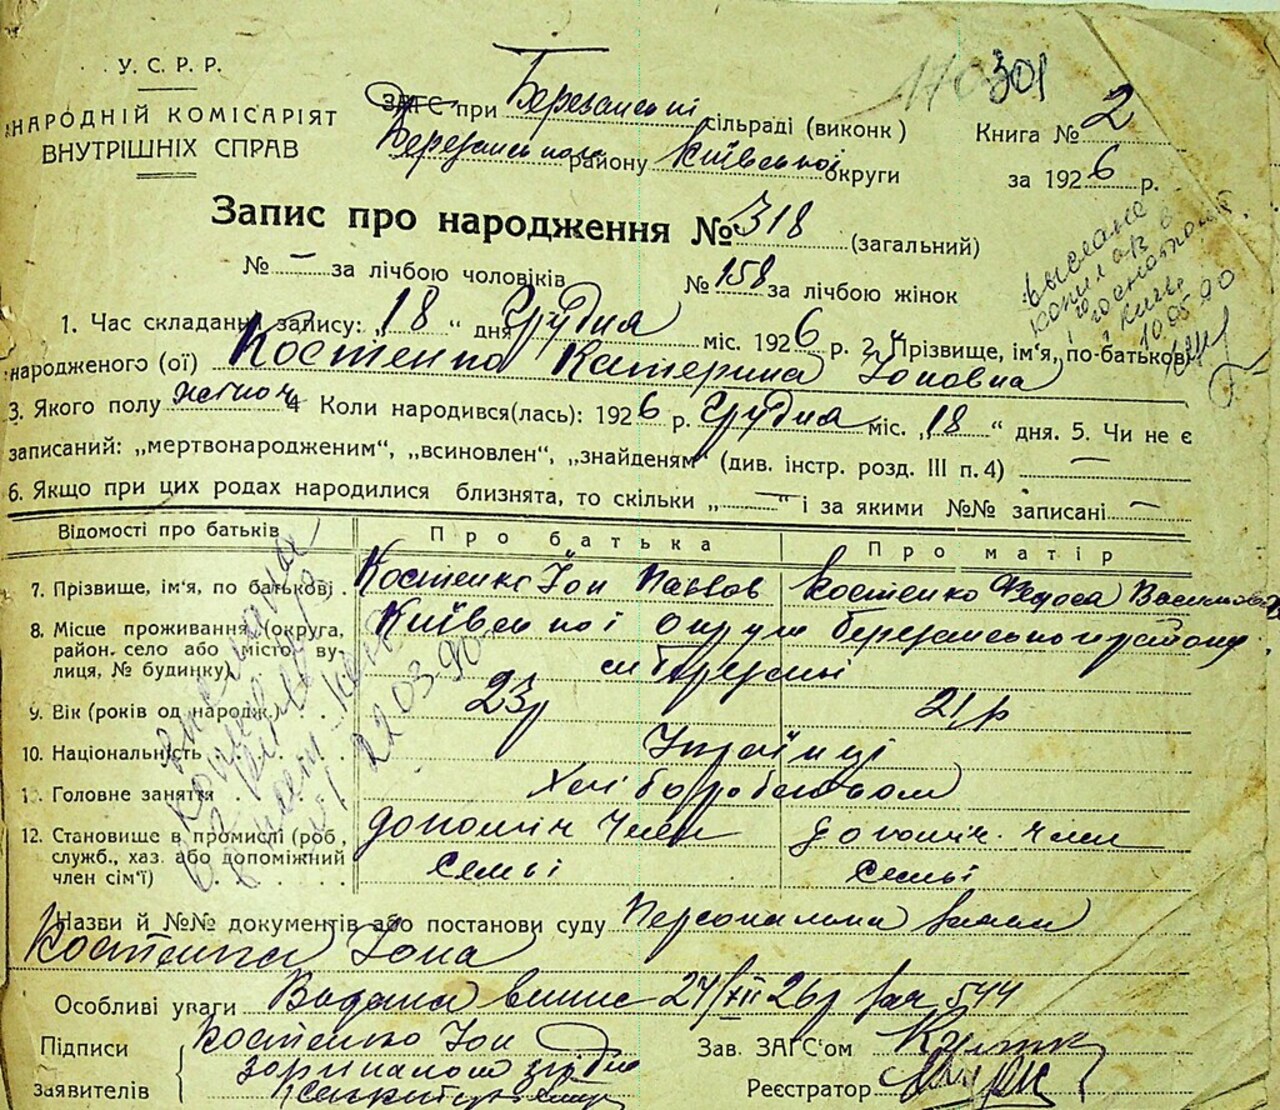 У.С.Р.Р.
НАРОДНІЙ КОМІСАРІЯТ
ВНУТРІШНІХ СПРАВ
ЗАГС при Березанські сільраді (виконк)
Березанського району Київської округи
301
Книга № 2
за 1926 р.
Запис про народження № 318 (загальний)
№ — за лічбою чоловіків № 158 за лічбою жінок
1. Час складання запису: „18“ дня Грудня міс. 1926 р. 2. Прізвище, ім'я, по-батькові
народженого (ої) Костенко Катерина Іоновна
3. Якого полу жіноч 4 Коли народився(лась): 1926 р. Грудня міс. „18“ дня. 5. Чи не є
записаний: „мертвонародженим“, „всиновлен“, „знайденям“ (див. інстр. розд. III п. 4) —
6. Якщо при цих родах народилися близнята, то скільки „—“ і за якими №№ записані —
Відомості про батьків Про батька Про матір
7. Прізвище, ім'я, по батькові Костенко Іон Павлов Костенко Федоса
8. Місце проживання (округа, район, село або місто, вулиця, № будинку) Київської округи Березанського району
см Березані
9. Вік (років од народж.) 23р 21р
10. Національність Українці
Головне заняття Хліборобством
12. Становище в промислі (роб, служб., хаз. або допоміжний член сім'ї) допоміч член семьї допоміч. член семьї
Назви й №№ документів або постанови суду Персональна заява
Костенка Іона
Особливі уваги Видана випис 24/XII 26р 544
Підписи заявителів Костенко Іон
Зав. ЗАГС'ом
Реєстратор
выслана
10 05 90
22 03 90